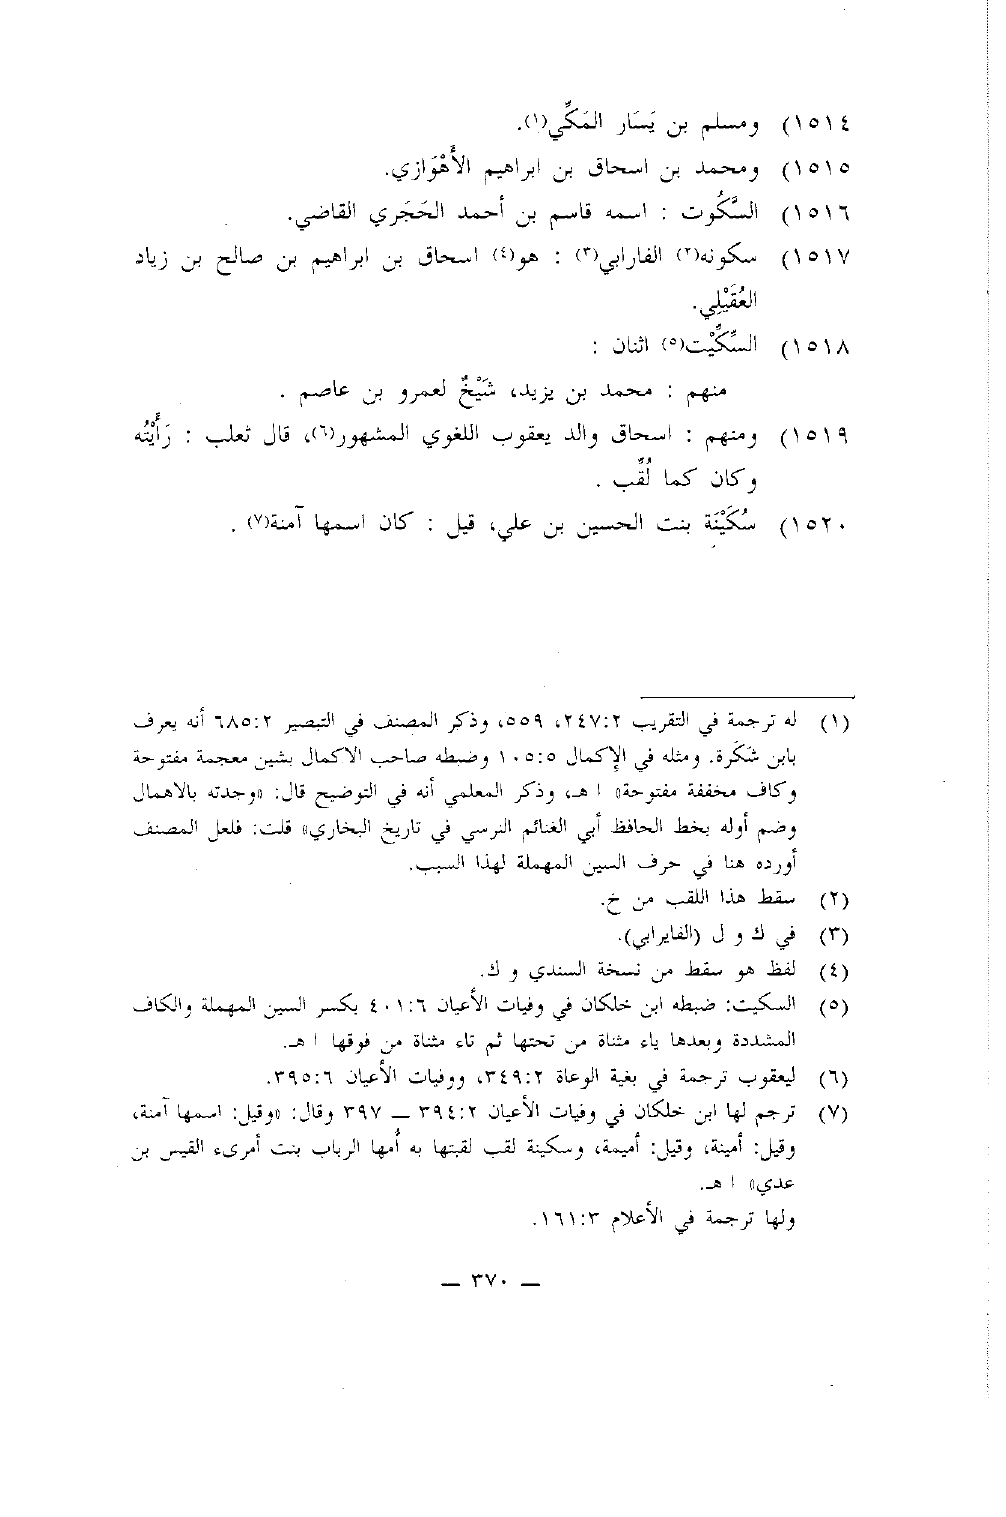 ١٥١٤) ومسلم بن يَسَار المَكِّي(١).
١٥١٥) ومحمد بن اسحاق بن ابراهيم الأَهْوَازي.
١٥١٦) السَّكُوت : اسمه قاسم بن أحمد الحَجَري القاضي.
١٥١٧) سكونه(٢) الفارابي(٣) : هو(٤) اسحاق بن ابراهيم بن صالح بن زياد
العُقَيْلِي.
١٥١٨) السِّكِّيْت(٥) اثنان :
منهم : محمد بن يزيد، شَيْخٌ لعمرو بن عاصم .
١٥١٩) ومنهم : اسحاق والد يعقوب اللغوي المشهور(٦)، قال ثعلب : رَأَيْتُه
وكان كما لُقِّب .
١٥٢٠) سُكَيْنَة بنت الحسين بن علي، قيل : كان اسمها آمنة(٧) .
(١) له ترجمة في التقريب ٢٤٧:٢، ٥٥٩، وذكر المصنف في التبصير ٦٨٥:٢ أنه يعرف
بابن شَكَرة. ومثله في الإكمال ١٠٥:٥ وضبطه صاحب الاكمال بشين معجمة مفتوحة
وكاف مخففة مفتوحة» ا هـ، وذكر المعلمي أنه في التوضيح قال: «وجدته بالاهمال
وضم أوله بخط الحافظ أبي الغنائم النرسي في تاريخ البخاري» قلت: فلعل المصنف
أورده هنا في حرف السين المهملة لهذا السبب.
(٢) سقط هذا اللقب من خ.
(٣) في ك و ل (الفايرابي).
(٤) لفظ هو سقط من نسخة السندي و ك.
(٥) السكيت: ضبطه ابن خلكان في وفيات الأعيان ٤٠١:٦ بكسر السين المهملة والكاف
المشددة وبعدها ياء مثناة من تحتها ثم تاء مثناة من فوقها ا هـ.
(٦) ليعقوب ترجمة في بغية الوعاة ٣٤٩:٢، ووفيات الأعيان ٣٩٥:٦.
(٧) ترجم لها ابن خلكان في وفيات الأعيان ٣٩٤:٢ — ٣٩٧ وقال: «وقيل: اسمها آمنة،
وقيل: أمينة، وقيل: أميمة، وسكينة لقب لقبتها به أُمها الرباب بنت أمرىء القيس بن
عدي» ا هـ.
ولها ترجمة في الأعلام ١٦١:٣.
— ٣٧٠ —